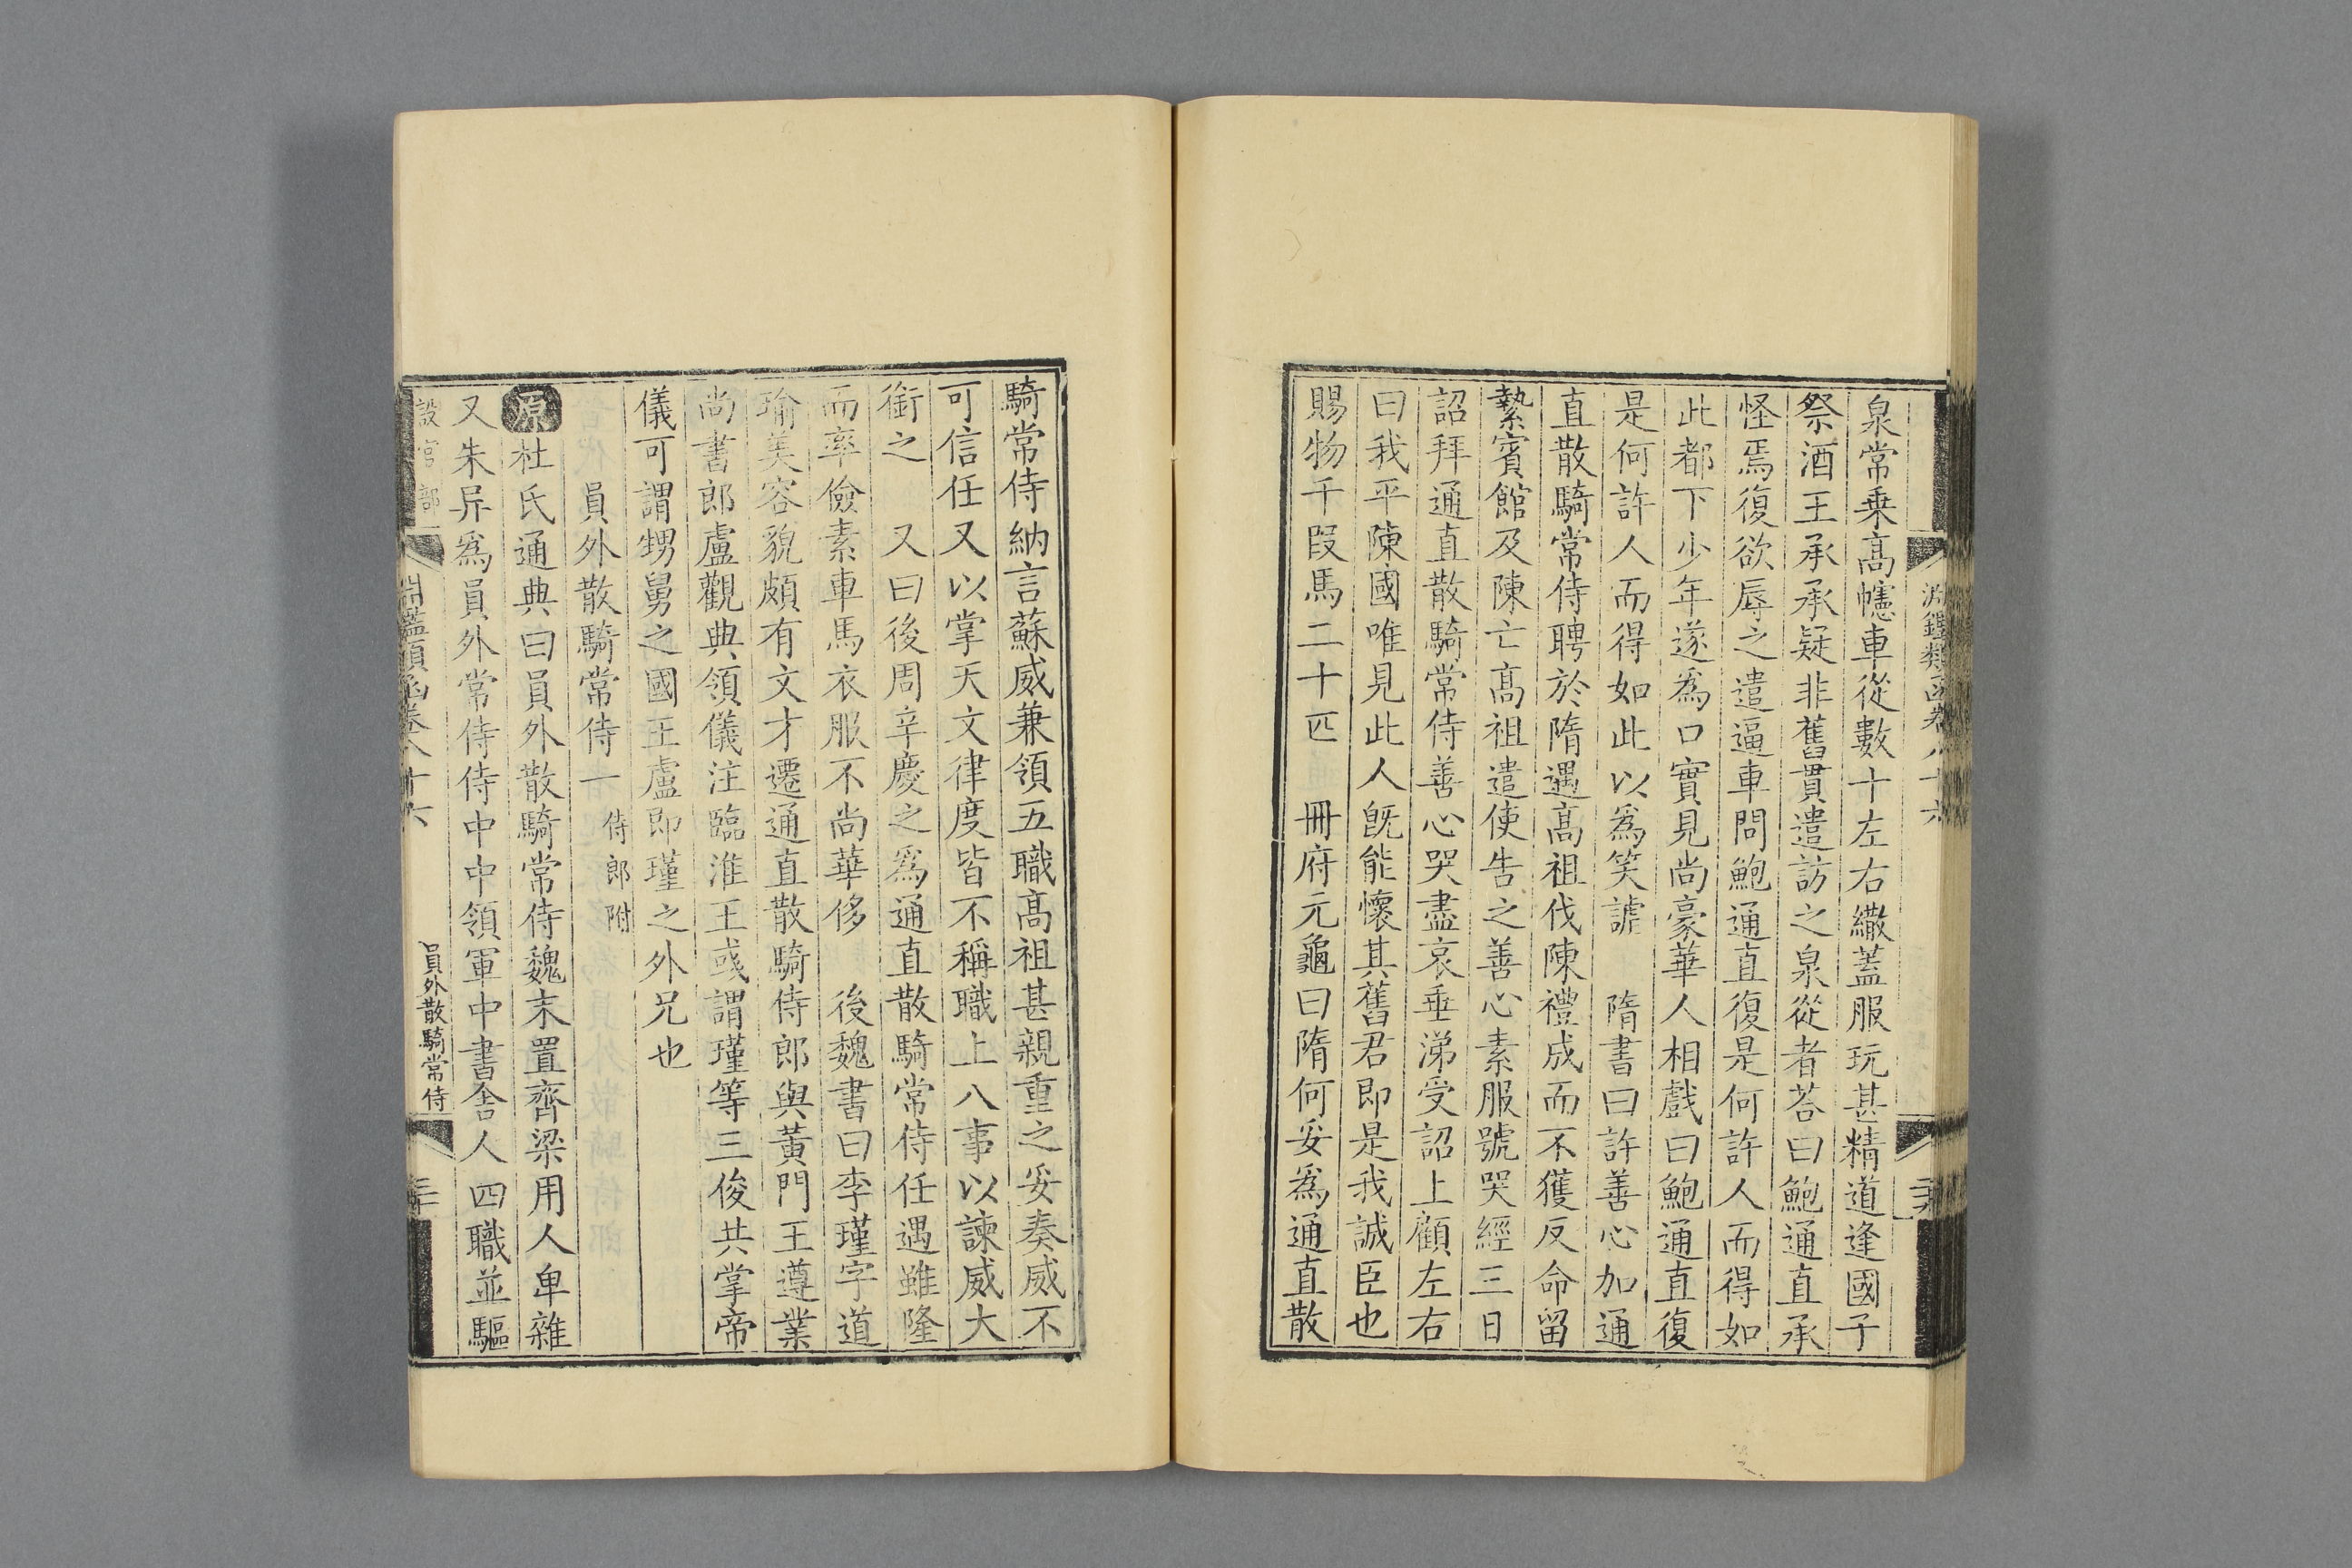 淵鑑類函卷八十六
泉常乗髙幰車從數十左右繖蓋服玩甚精道逢國子
祭酒王承承疑非舊貫遣訪之泉從者荅曰鮑通直承
怪焉復欲辱之遣逼車問鮑通直復是何許人而得如
此都下少年遂爲口實見尚豪華人相戲曰鮑通直復
是何許人而得如此以爲笑謔　隋書曰許善心加通
直散騎常侍聘於隋遇髙祖伐陳禮成而不獲反命留
縶賓館及陳亡髙祖遣使告之善心素服號哭經三日
詔拜通直散騎常侍善心哭盡哀垂涕受詔上顧左右
曰我平陳國唯見此人旣能懷其舊君即是我誠臣也
賜物千段馬二十匹　冊府元龜曰隋何妥爲通直散
騎常侍納言蘇威兼領五職髙祖甚親重之妥奏威不
可信任又以掌天文律度皆不稱職上八事以諫威大
銜之　又曰後周辛慶之爲通直散騎常侍任遇雖隆
而率儉素車馬衣服不尚華侈　後魏書曰李瑾字道
瑜美容貌頗有文才遷通直散騎侍郎與黃門王遵業
尚書郎盧觀典領儀注臨淮王彧謂瑾等三俊共掌帝
儀可謂甥舅之國王盧即瑾之外兄也
員外散騎常侍一　侍郎附
原杜氏通典曰員外散騎常侍魏末置齊梁用人卑雜
又朱异爲員外常侍侍中中領軍中書舍人四職並驅
設官部　淵鑑類函卷八十六　員外散騎常侍